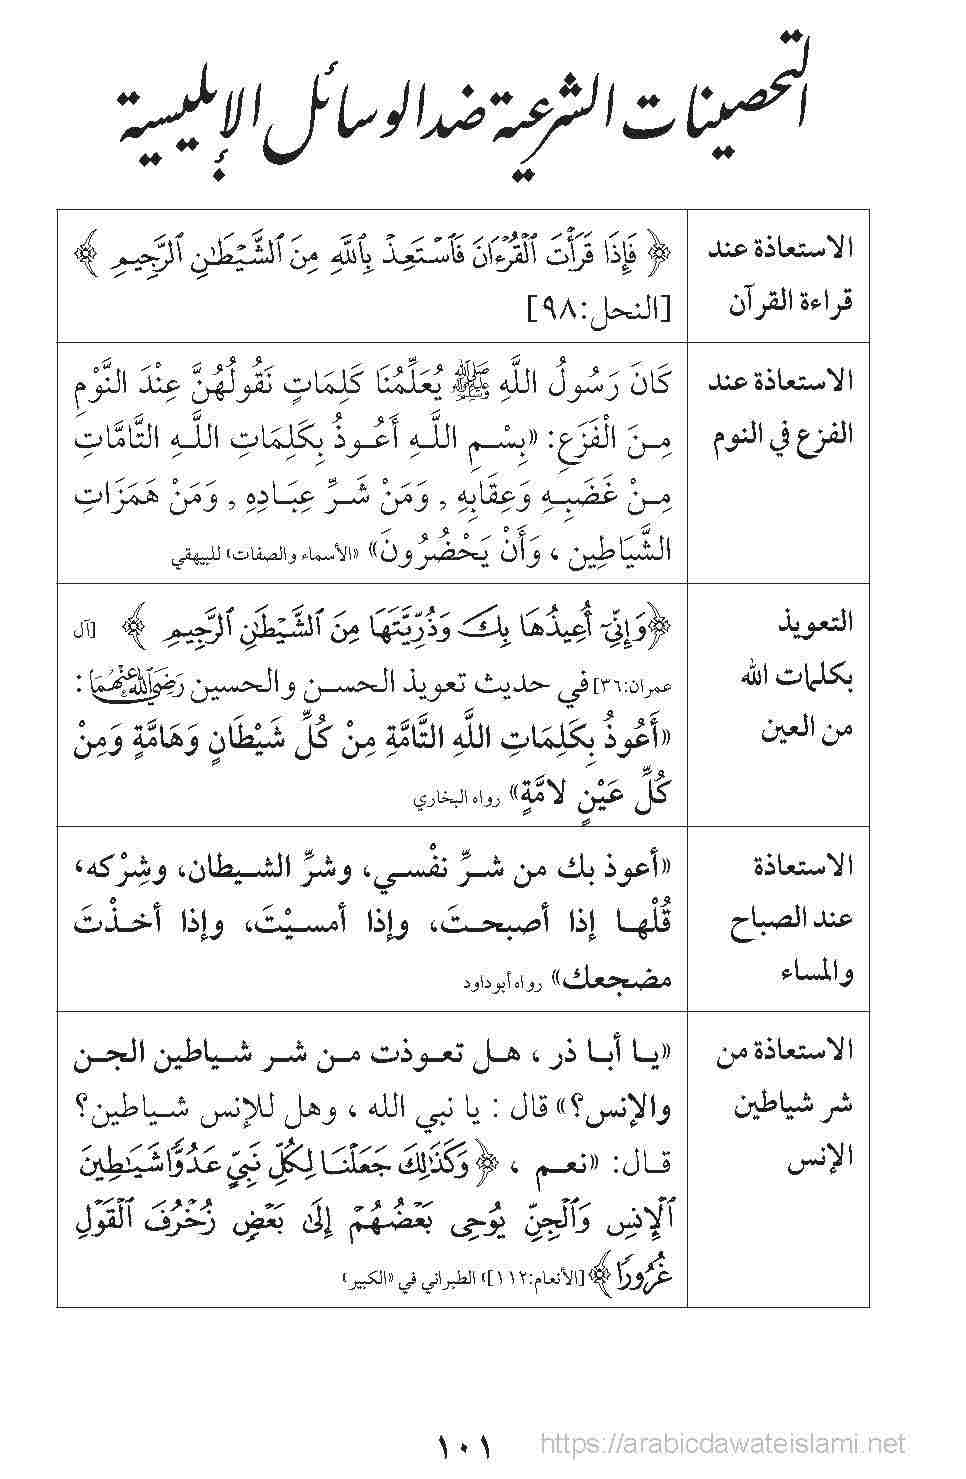 التحصينات الشرعية ضد الوسائل الإبليسية
الاستعاذة عند
قراءة القرآن
﴿ فَإِذَا قَرَأْتَ ٱلْقُرْءَانَ فَٱسْتَعِذْ بِٱللَّهِ مِنَ ٱلشَّيْطَٰنِ ٱلرَّجِيمِ ﴾
[النحل:٩٨]
الاستعاذة عند
الفزع في النوم
كَانَ رَسُولُ اللَّهِ ﷺ يُعَلِّمُنَا كَلِمَاتٍ نَقُولُهُنَّ عِنْدَ النَّوْمِ
مِنَ الْفَزَعِ: «بِسْمِ اللَّهِ أَعُوذُ بِكَلِمَاتِ اللَّهِ التَّامَّاتِ
مِنْ غَضَبِهِ وَعِقَابِهِ , وَمَنْ شَرِّ عِبَادِهِ , وَمَنْ هَمَزَاتِ
الشَّيَاطِين ، وَأَنْ يَحْضُرُونَ» «الأسماء والصفات» للبيهقي
التعويذ
بكلمات الله
من العين
﴿وَإِنِّىٓ أُعِيذُهَا بِكَ وَذُرِّيَّتَهَا مِنَ ٱلشَّيْطَٰنِ ٱلرَّجِيمِ ﴾ [آل
عمران:٣٦] في حديث تعويذ الحسن والحسين رَضِيَ اللَّهُ عَنْهُمَا :
«أَعُوذُ بِكَلِمَاتِ اللَّهِ التَّامَّةِ مِنْ كُلِّ شَيْطَانٍ وَهَامَّةٍ وَمِنْ
كُلِّ عَيْنٍ لامَّةٍ» رواه البخاري
الاستعاذة
عند الصباح
والمساء
«أعوذ بك من شرِّ نفْسي، وشرِّ الشيطان، وشِرْكه،
قُلْها إذا أصبحتَ، وإذا أمسيْتَ، وإذا أخذْتَ
مضجعك» رواه أبو داود
الاستعاذة من
شر شياطين
الإنس
«يا أبا ذر ، هل تعوذت من شر شياطين الجن
والإنس؟» قال : يا نبي الله ، وهل للإنس شياطين؟
قال: «نعم ، ﴿وَكَذَٰلِكَ جَعَلْنَا لِكُلِّ نَبِىٍّ عَدُوًّا شَيَٰطِينَ
ٱلْإِنسِ وَٱلْجِنِّ يُوحِى بَعْضُهُمْ إِلَىٰ بَعْضٍ زُخْرُفَ ٱلْقَوْلِ
غُرُورًا﴾ [الأنعام:١١٢]» الطبراني في «الكبير»
١٠١
https://arabicdawateislami.net